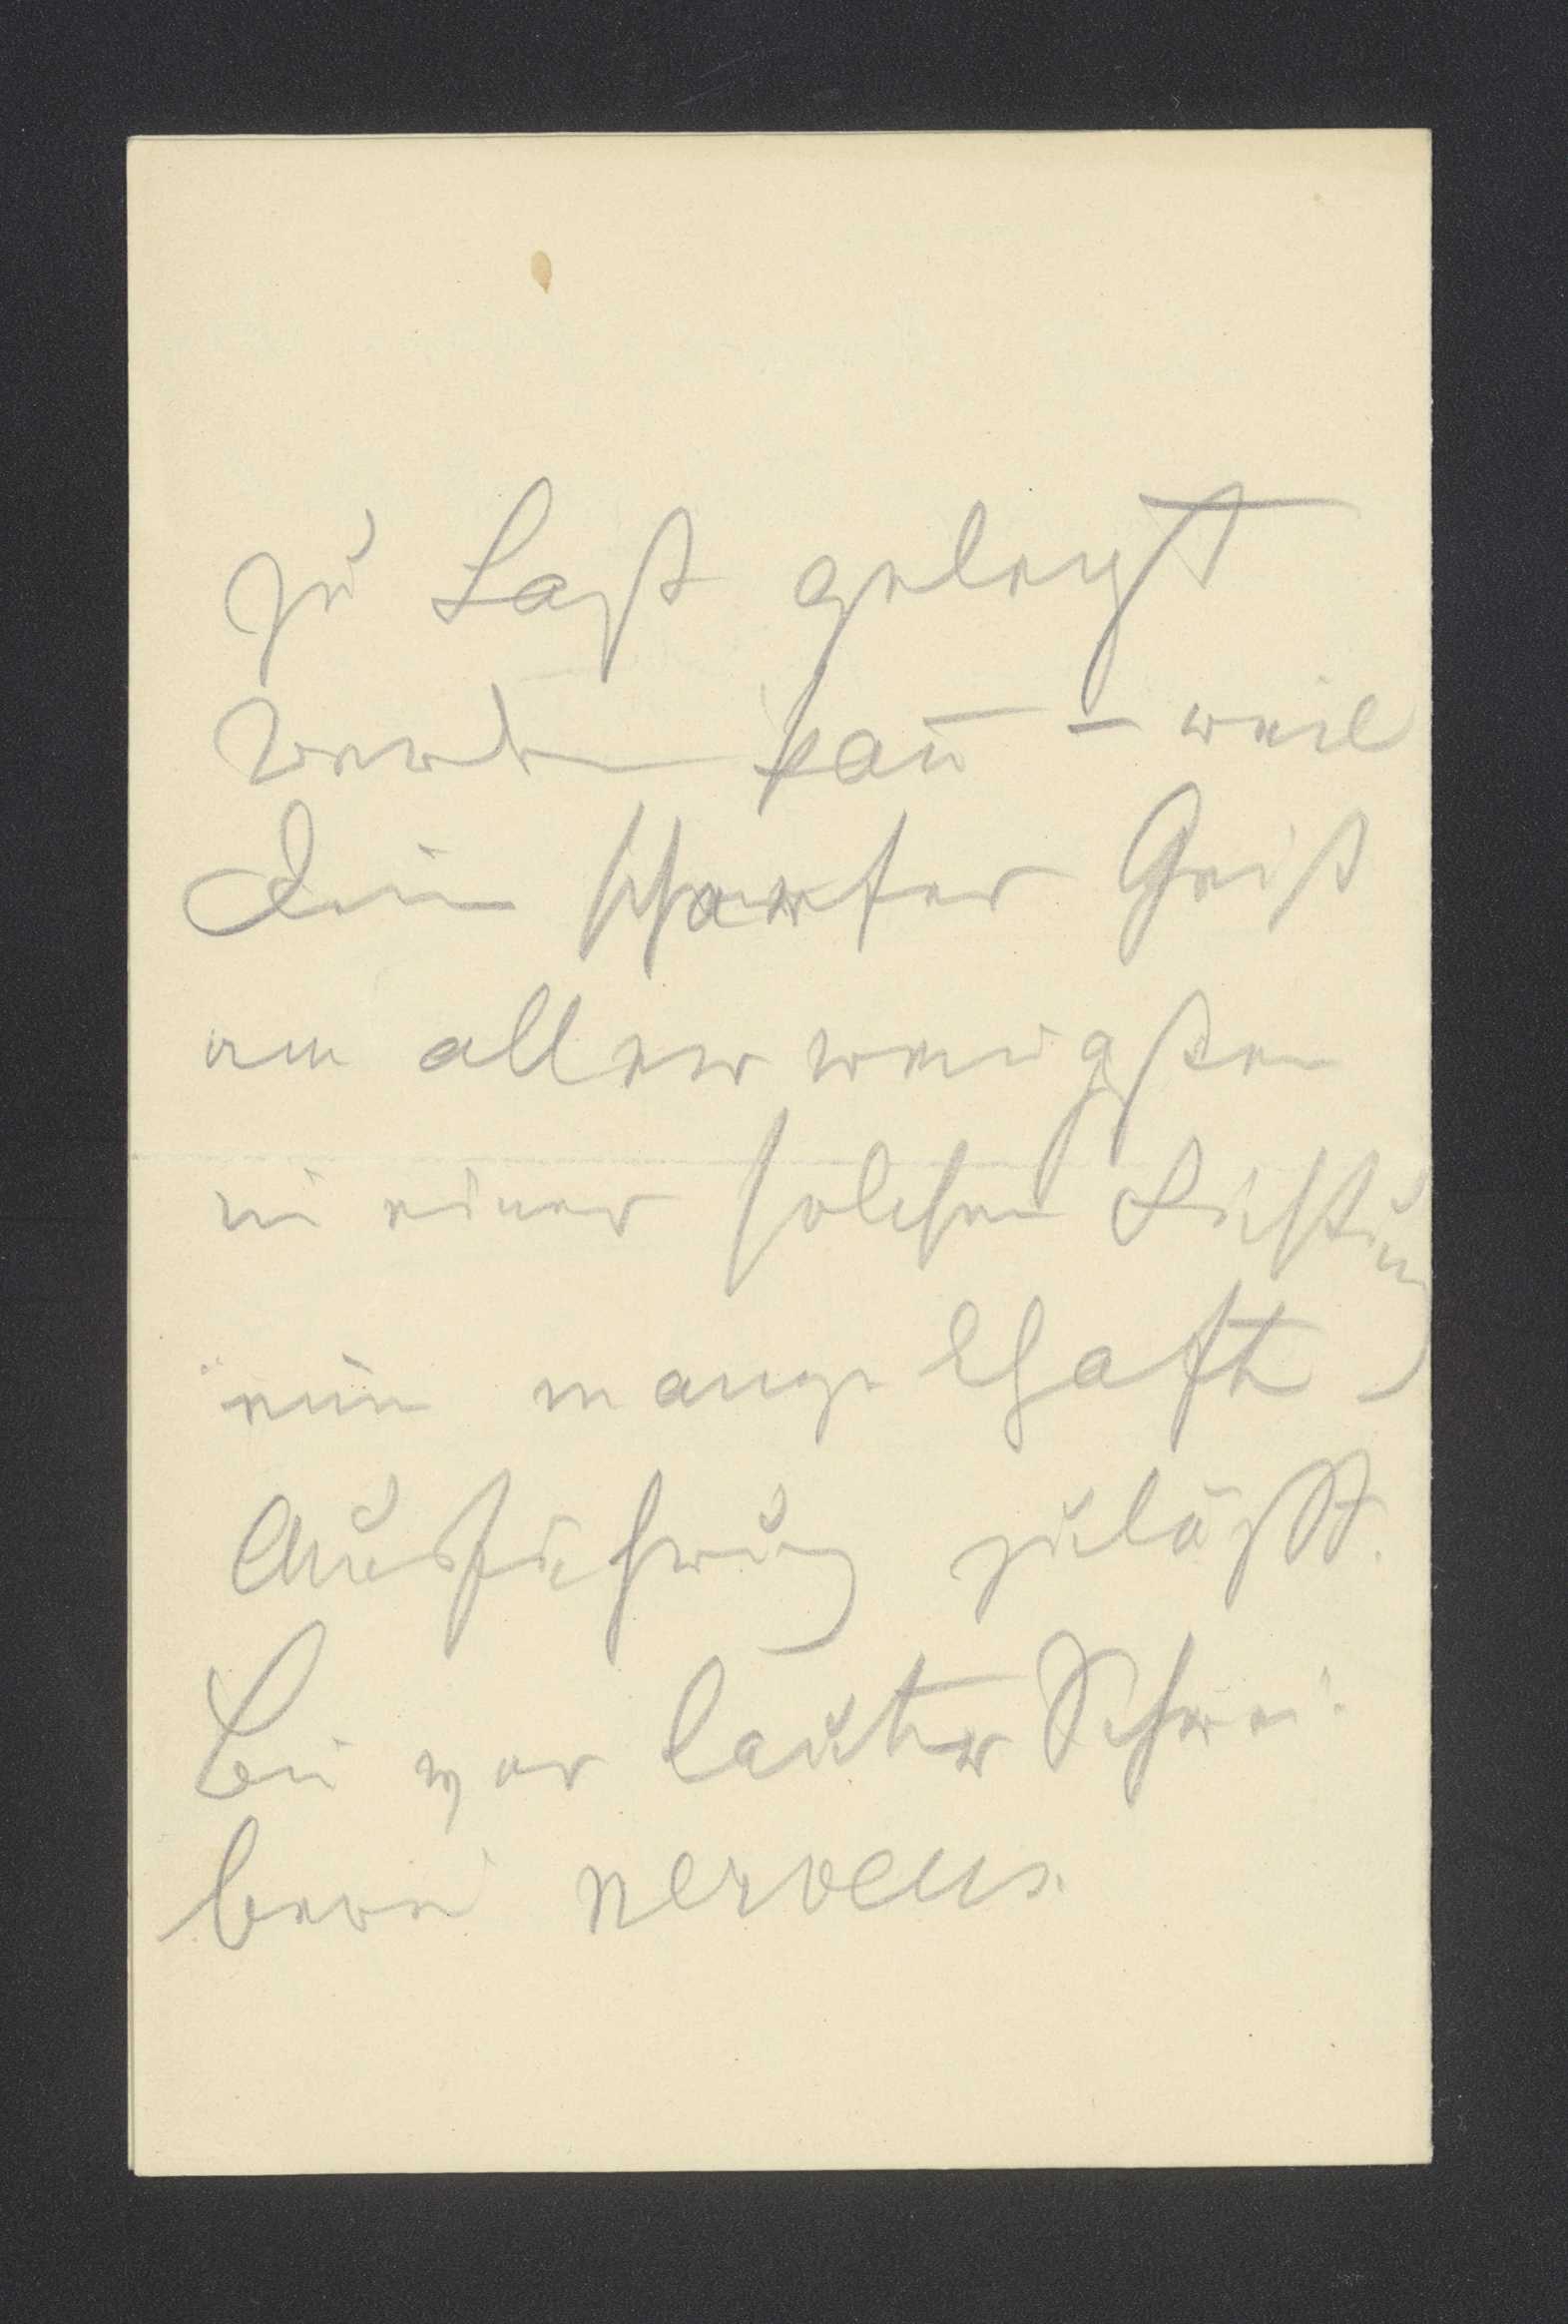 zu Last gelegt
werden kan̄ – weil
Dein scharfer Geist
am allerwenigsten
in einer solchen Richtung
eine mangelhafte
Ausführung zuläßt.
Bin vor lauter Schrei-
berei nerveus.